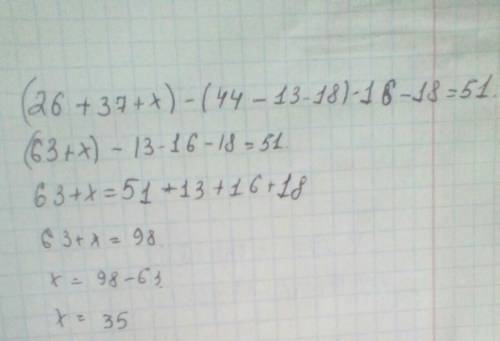 (26 + 37 + x) - (44 - 13 - 18) - 16 - 18 = 51.
(63 + x) - 13 - 16 - 18 = 51.
63 + x = 51 + 13 + 16 + 18
63 + x = 98
x = 98 - 63
x = 35